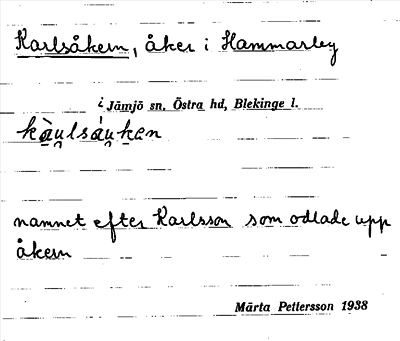 Karlsåkern, åker i Hammarby
i Jämjö sn. Östra hd, Blekinge l.
kàu̯lsáu̯ken
namnet efter Karlsson som odlade upp
åkern
Märta Pettersson 1938